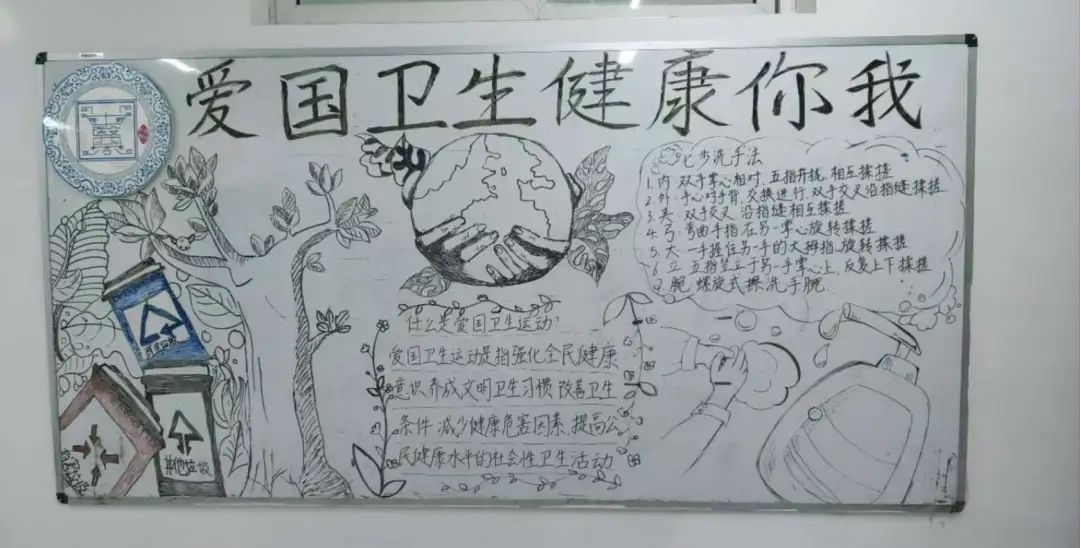 爱国卫生健康你我
七步洗手法
1.内 双手掌心相对,五指并拢,相互揉搓
2.外 手心对手背,交换进行,双手交叉沿指缝揉搓
3.夹 双手交叉 沿指缝相互揉搓
4.弓 弯曲手指在另一掌心旋转揉搓
5.大 一手握住另一手的大拇指,旋转揉搓
6.立 五指竖立于另一手掌心上,反复上下揉搓
7.腕 螺旋式擦洗手腕
什么是爱国卫生运动?
爱国卫生运动是指强化全民健康
意识 养成文明卫生习惯 改善卫生
条件 减少健康危害因素、提高公
民健康水平的社会性卫生活动
其他垃圾